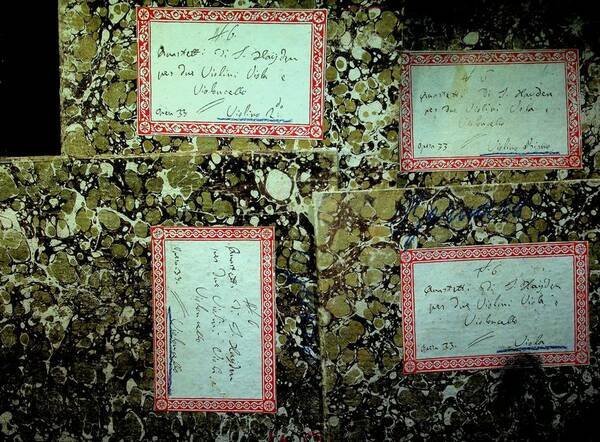 N° 6
Quartetti Di S. Haydn
per due Violini Viola e
Violoncello
Opera 33. Violino 2do
N° 6
Quartetti Di S. Hayden
per due Violini Viola e
Violoncello
Opera 33 Violino Primo
N° 6
Quartetti Di S. Haydn
per due Violini Viola e
Violoncello
Opera 33. Violoncello
N° 6
Quartetti Di S. Haydn
per due Violini Viola e
Violoncello
Opera 33. Viola